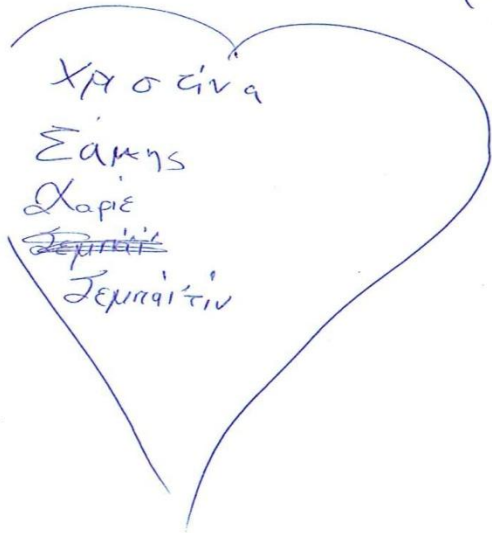 Χριστίνα
Σάμης
Χαριέ
Ζεμπαϊτίν